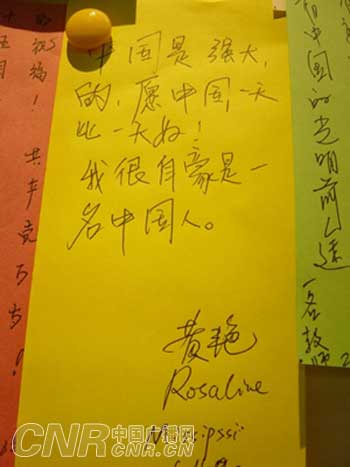 中国是强大
的,愿中国一天
比一天好!
我很自豪是一
名中国人。
黄艳
Rosaline
祝福!
共
产
党
万
岁!
中国的光明前途
一名教师
CNR中国广播网
www.cnr.cn